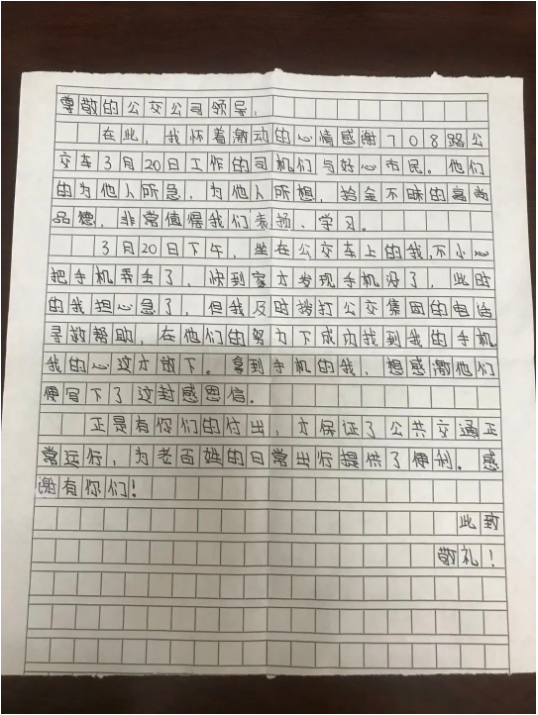 尊敬的公交公司领导：
在此，我怀着激动的心情感谢708路公
交车3月20日工作的司机们与好心市民。他们
的为他人所急，为他人所想，拾金不昧的高尚
品德，非常值得我们表扬、学习。
3月20日下午，坐在公交车上的我，不小心
把手机弄丢了，快到家才发现手机没了，此时
的我担心急了，但我及时拨打公交集团的电话
寻救帮助，在他们的努力下成功找到我的手机
我的心这才放下。拿到手机的我，想感激他们
便写下了这封感恩信。
正是有你们的付出，才保证了公共交通正
常运行，为老百姓的日常出行提供了便利。感
谢有你们！
此致
敬礼！